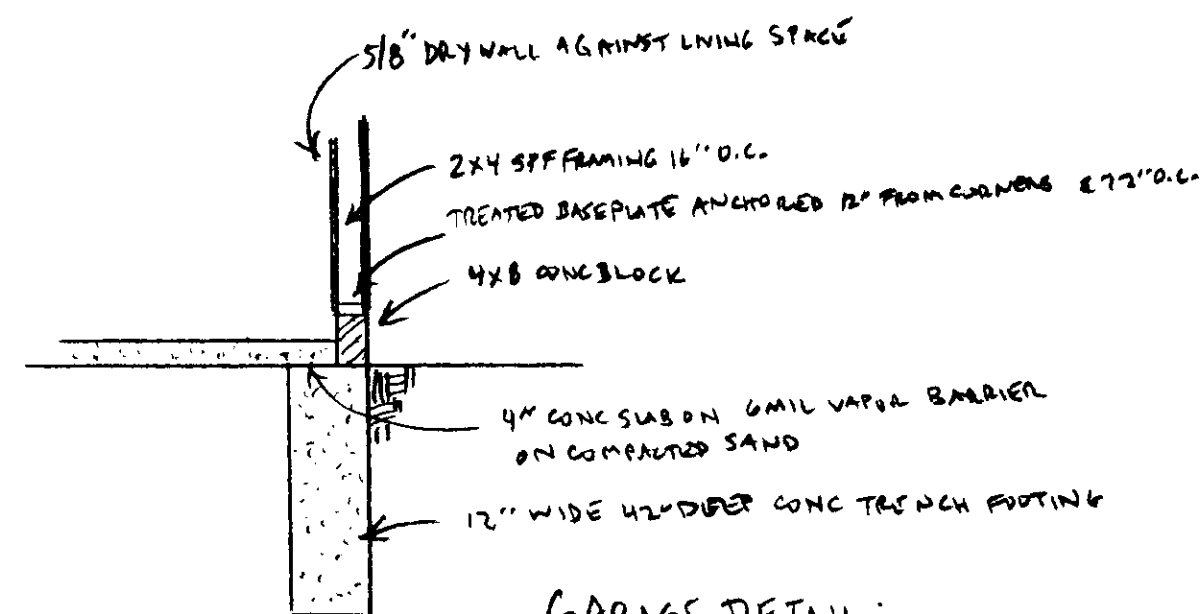 5/8" DRYWALL AGAINST LIVING SPACE
2x4 SPF FRAMING 16" O.C.
TREATED BASEPLATE ANCHORED 12" FROM CORNERS & 72" O.C.
4x8 CONC BLOCK
4" CONC SLAB ON 6MIL VAPOR BARRIER
ON COMPACTED SAND
12" WIDE 42" DEEP CONC TRENCH FOOTING
GARAGE DETAIL: